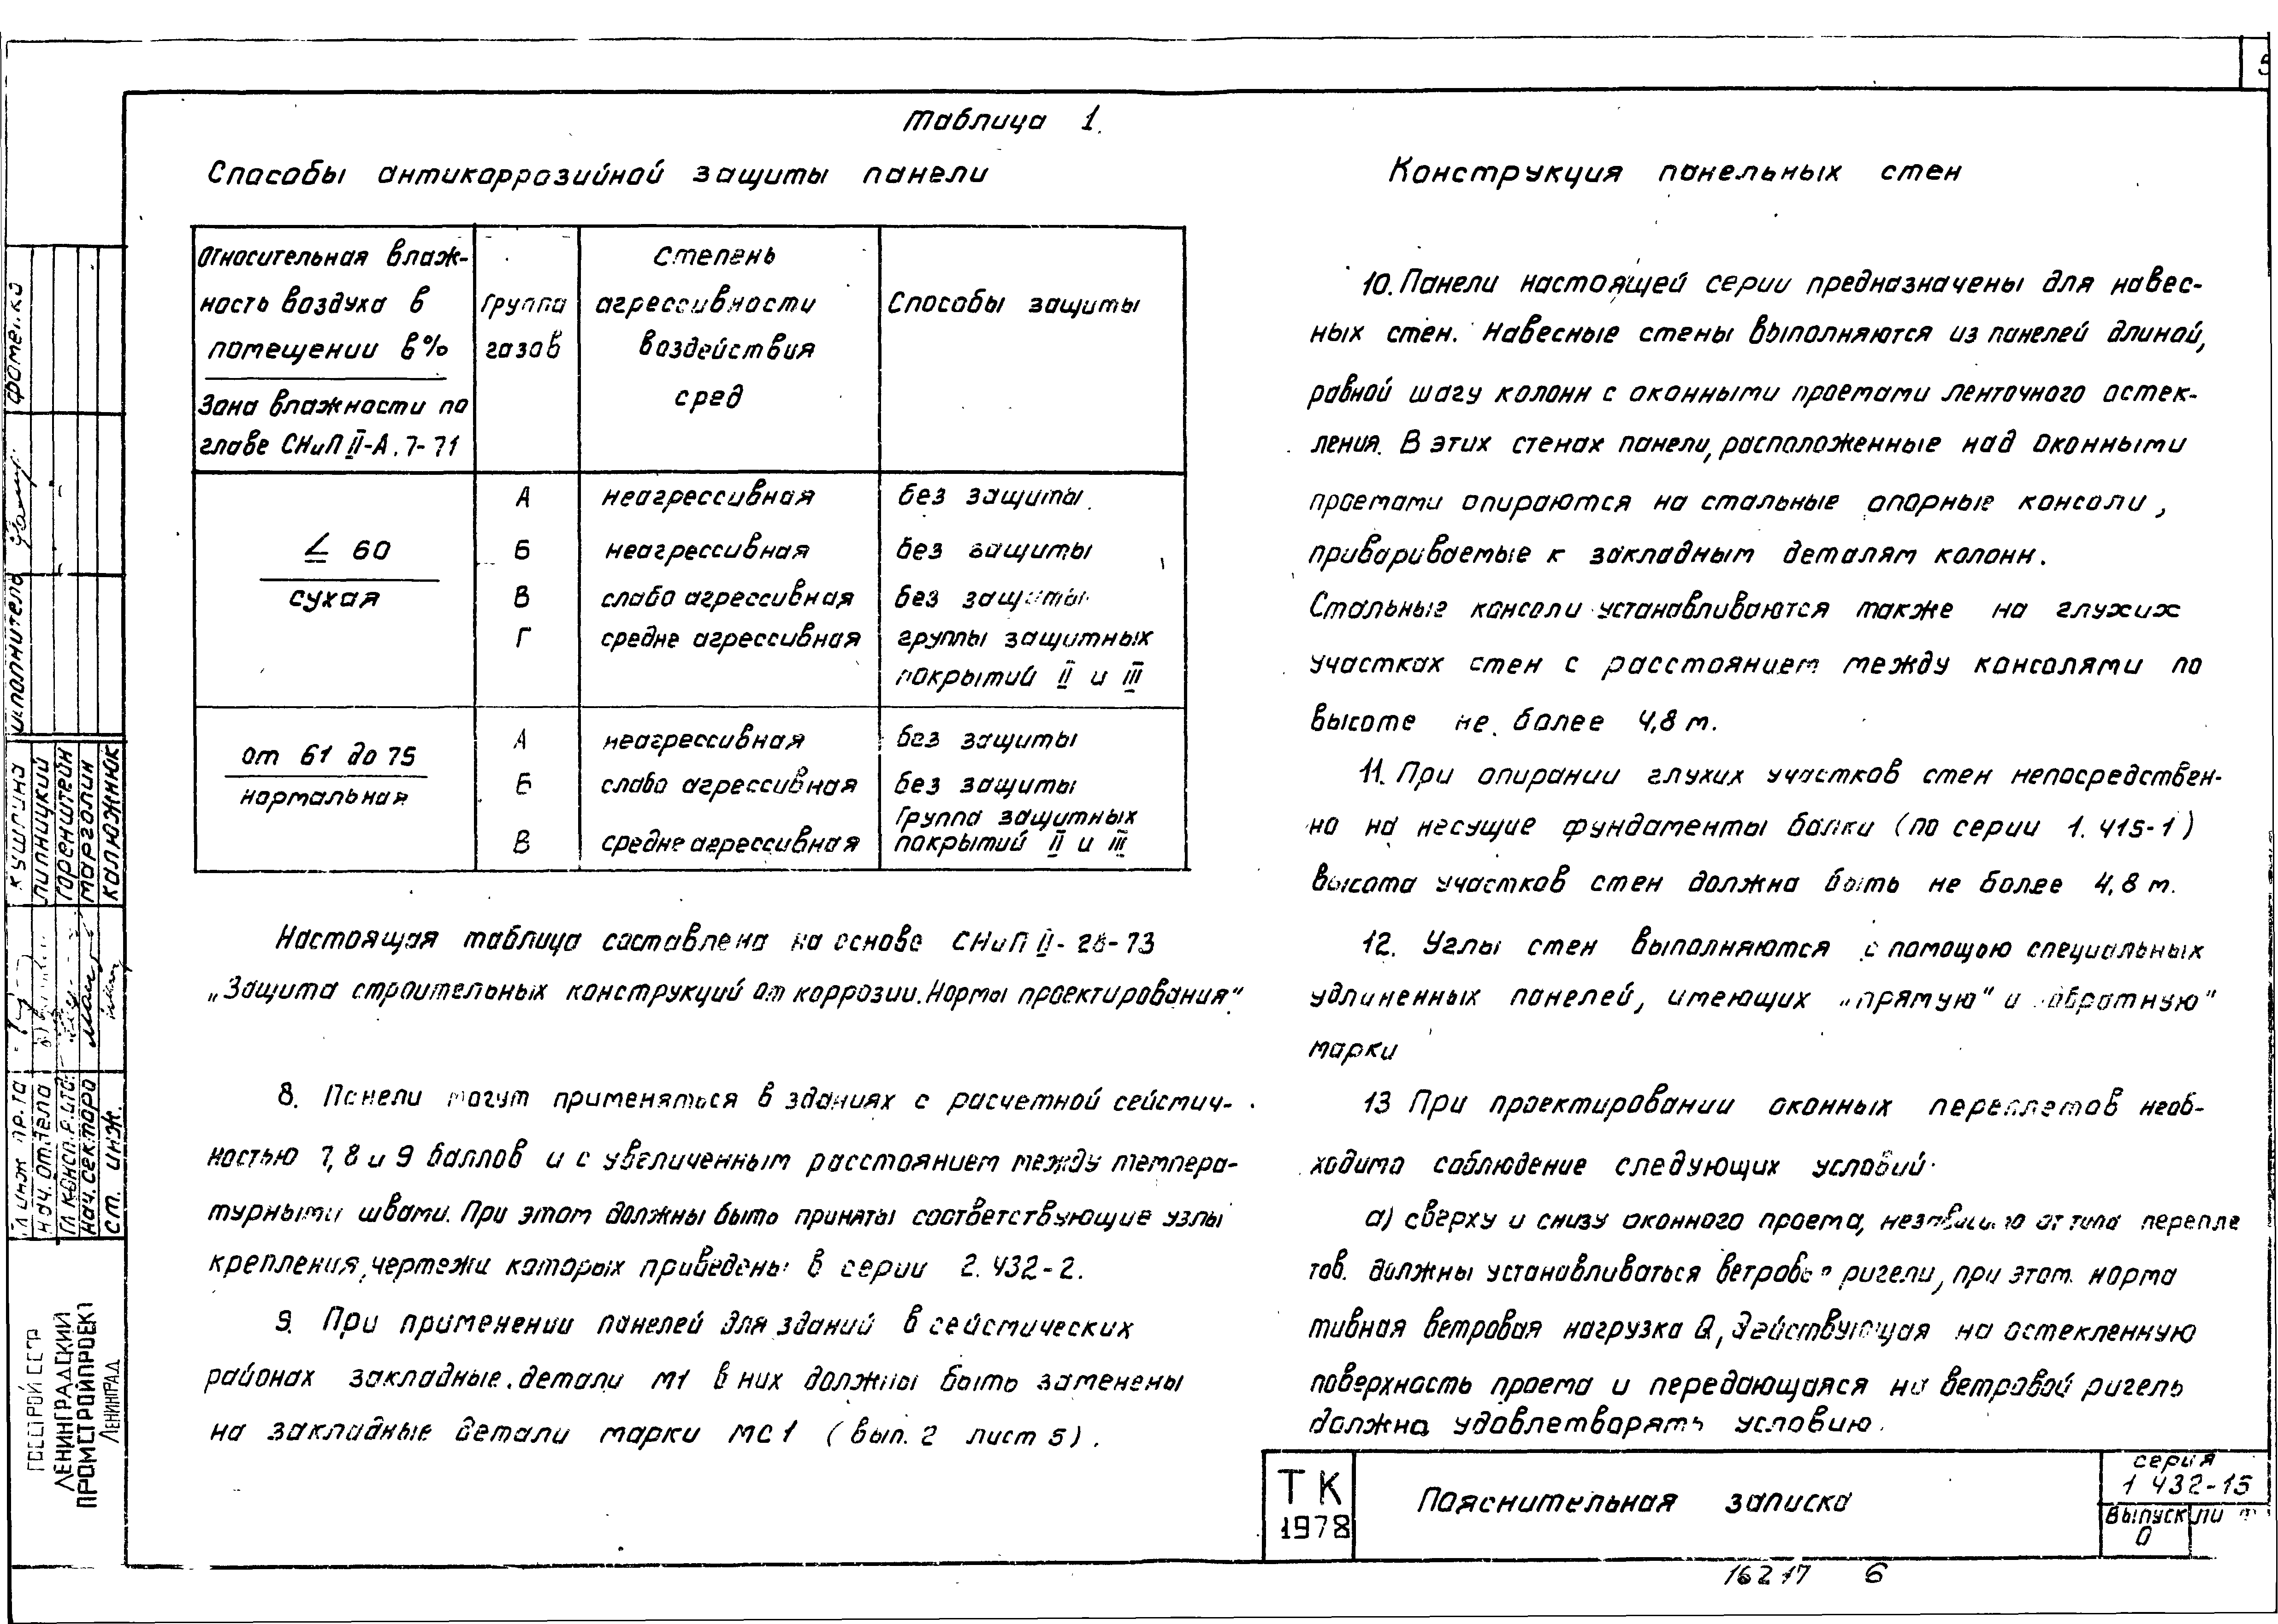 5
Таблица 1.
Способы антикоррозийной защиты панели
Относительная влаж-
ность воздуха в
помещении в%
Зона влажности по
главе СНиП II-А.7-71
Группа
газов
Степень
агрессивности
воздействия
сред
Способы защиты
≤ 60
сухая
А неагрессивная без защиты
Б неагрессивная без защиты
В слабо агрессивная без защиты
Г средне агрессивная группы защитных
покрытий II и III
от 61 до 75
нормальная
А неагрессивная без защиты
Б слабо агрессивная без защиты
В средне агрессивная Группа защитных
покрытий II и III
Настоящая таблица составлена на основе СНиП II-28-73
„Защита строительных конструкций от коррозии. Нормы проектирования".
8. Панели могут применяться в зданиях с расчетной сейсмич-
ностью 7, 8 и 9 баллов и с увеличенным расстоянием между темпера-
турными швами. При этом должны быть приняты соответствующие узлы
крепления, чертежи которых приведены в серии 2.432-2.
9. При применении панелей для зданий в сейсмических
районах закладные детали М1 в них должны быть заменены
на закладные детали марки МС1 (вып. 2 лист 5).
Конструкция панельных стен
10. Панели настоящей серии предназначены для навес-
ных стен. Навесные стены выполняются из панелей длиной,
равной шагу колонн с оконными проемами ленточного остек-
ления. В этих стенах панели, расположенные над оконными
проемами опираются на стальные опорные консоли,
привариваемые к закладным деталям колонн.
Стальные консоли устанавливаются также на глухих
участках стен с расстоянием между консолями по
высоте не более 4,8 м.
11. При опирании глухих участков стен непосредствен-
но на несущие фундаменты балки (по серии 1.415-1)
высота участков стен должна быть не более 4,8 м.
12. Углы стен выполняются с помощью специальных
удлиненных панелей, имеющих „прямую" и „обратную"
марки
13 При проектировании оконных переплетов необ-
ходимо соблюдение следующих условий.
а) сверху и снизу оконного проема, независимо от типа перепле
тов. должны устанавливаться ветровые ригели, при этом норма
тивная ветровая нагрузка Q, действующая на остекленную
поверхность проема и передающаяся на ветровой ригель
должна удовлетворять условию.
ТК
1978
Пояснительная записка
серия
1 432-15
Выпуск
0
16217 6
Фоменко
исполнитель
Кушпина
Липницкий
Горенштейн
Марголин
Калюжнюк
Гл инж пр.та
Нач. отдела
Гл консп. р. отд.
Нач. сектора
Ст. инж.
ГОССТРОЙ СССР
ЛЕНИНГРАДСКИЙ
ПРОМСТРОЙПРОЕКТ
ЛЕНИНГРАД